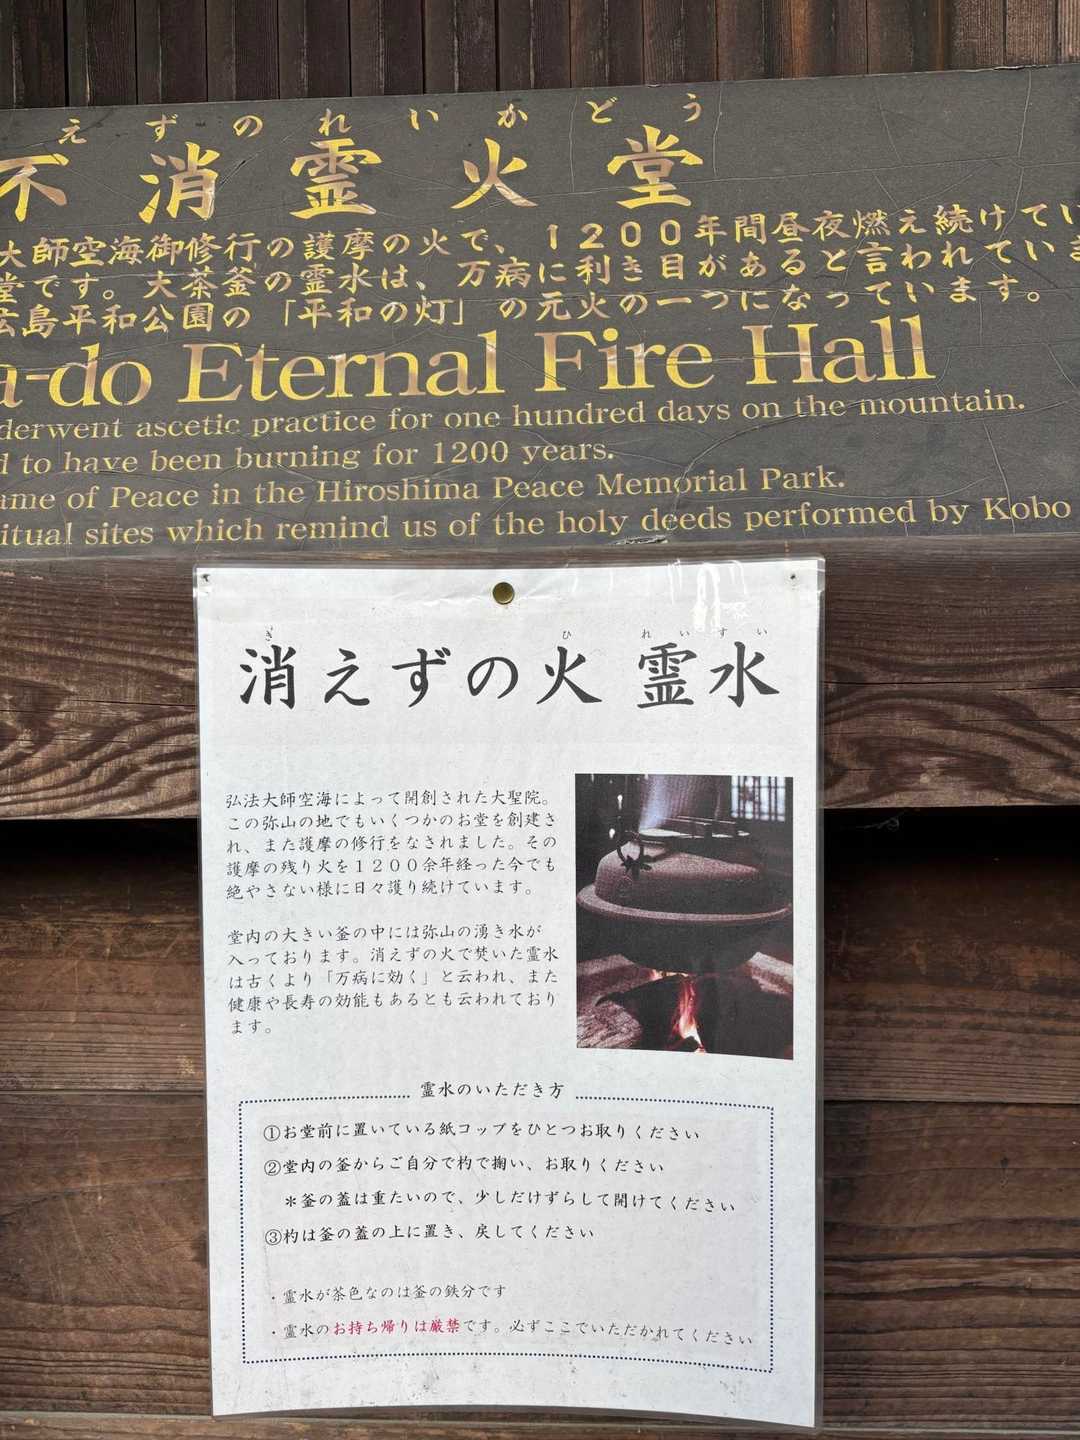 えずのれいかどう
不消霊火堂
大師空海御修行の護摩の火で、1200年間昼夜燃え続けてい
堂です。大茶釜の霊水は、万病に利き目があると言われていま
広島平和公園の「平和の灯」の元火の一つになっています。
a-do Eternal Fire Hall
derwent ascetic practice for one hundred days on the mountain.
d to have been burning for 1200 years.
ame of Peace in the Hiroshima Peace Memorial Park.
itual sites which remind us of the holy deeds performed by Kobo
き ひ れいすい
消えずの火 霊水
弘法大師空海によって開創された大聖院。
この弥山の地でもいくつかのお堂を創建さ
れ、また護摩の修行をなされました。その
護摩の残り火を1200余年経った今でも
絶やさない様に日々護り続けています。
堂内の大きい釜の中には弥山の湧き水が
入っております。消えずの火で焚いた霊水
は古くより「万病に効く」と云われ、また
健康や長寿の効能もあるとも云われており
ます。
霊水のいただき方
①お堂前に置いている紙コップをひとつお取りください
②堂内の釜からご自分で杓で掬い、お取りください
＊釜の蓋は重たいので、少しだけずらして開けてください
③杓は釜の蓋の上に置き、戻してください
・霊水が茶色なのは釜の鉄分です
・霊水のお持ち帰りは厳禁です。必ずここでいただかれてください